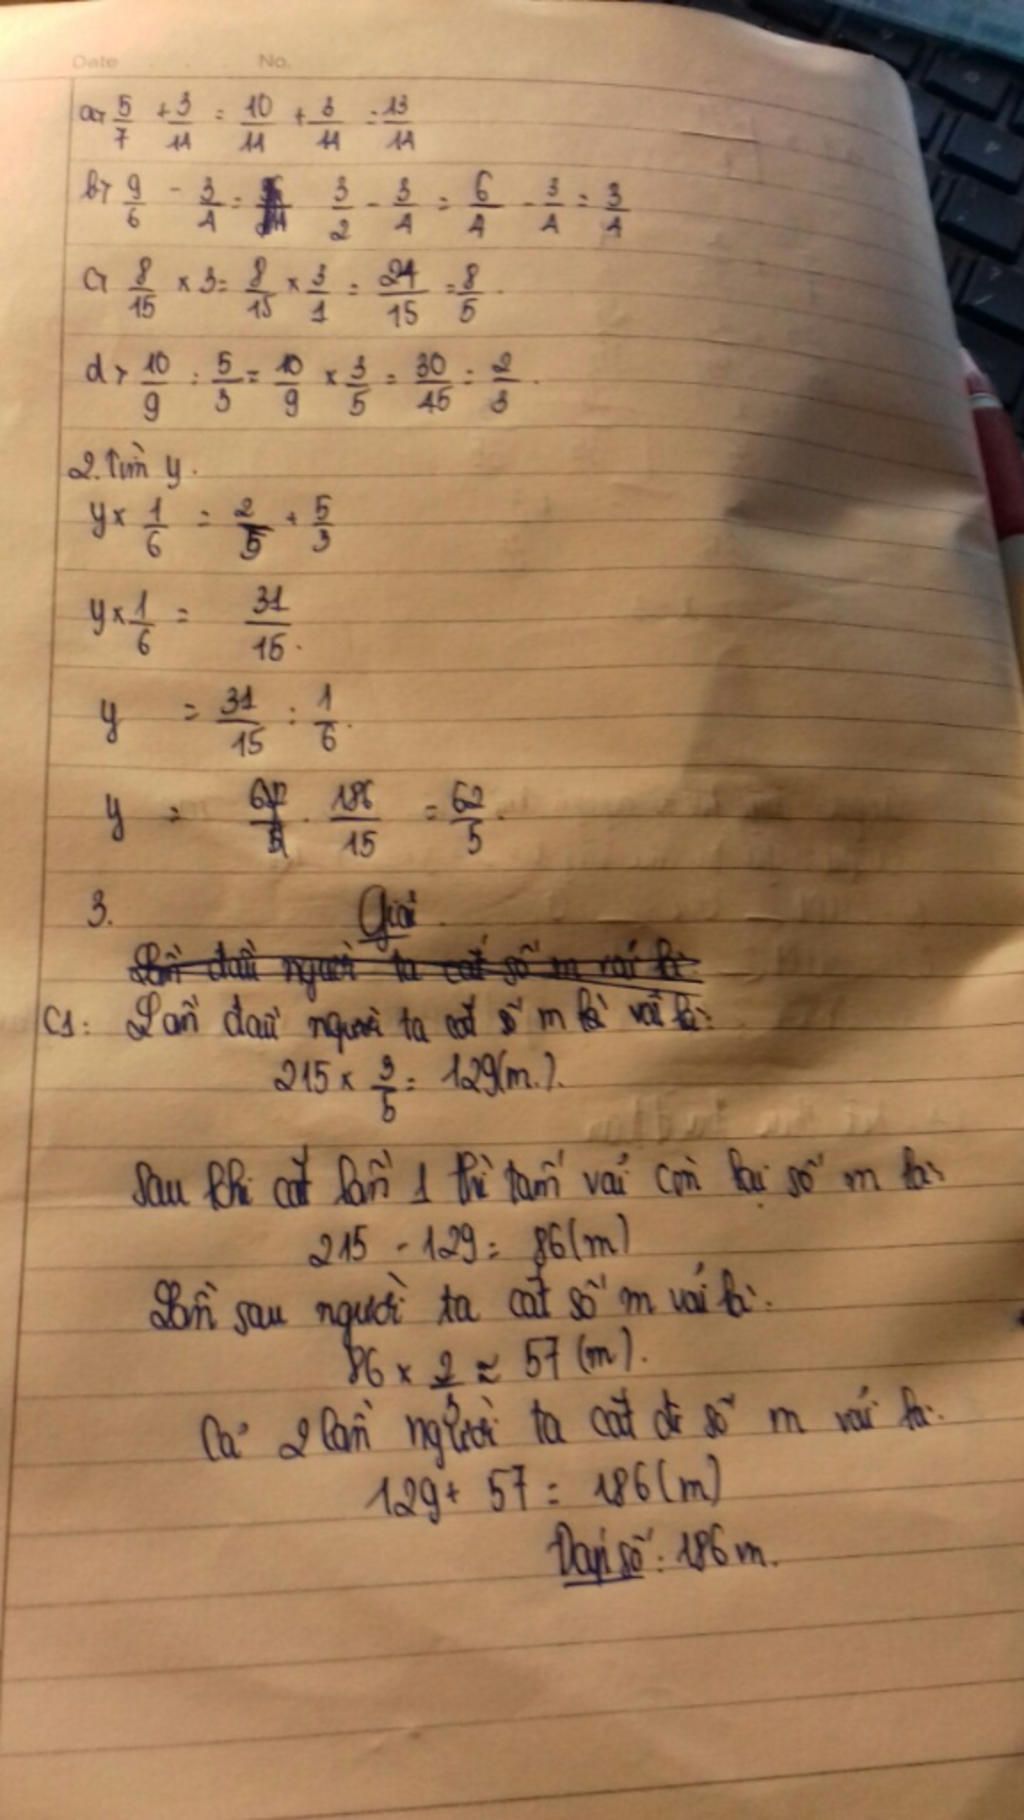 Date No.
a, 5/7 + 3/14 = 10/14 + 3/14 = 13/14
b, 9/6 - 3/4 = 3/2 - 3/4 = 6/4 - 3/4 = 3/4
c, 8/15 × 3 = 8/15 × 3/1 = 24/15 = 8/5.
d, 10/9 : 5/3 = 10/9 × 3/5 = 30/45 = 2/3.
2. Tìm y.
y × 1/6 = 2/5 + 5/3
y × 1/6 = 31/15.
y = 31/15 : 1/6.
y = 186/15 = 62/5.
3. Giải
Lần đầu người ta cắt số m vải là:
C1: Lần đầu người ta cắt số m vải là:
215 × 3/5 = 129(m.).
Sau khi cắt lần 1 thì tấm vải còn lại số m là:
215 - 129 = 86(m)
Lần sau người ta cắt số m vải là:
86 × 2/3 ≈ 57 (m).
Cả 2 lần người ta cắt đi số m vải là:
129 + 57 = 186(m)
Đáp số: 186m.